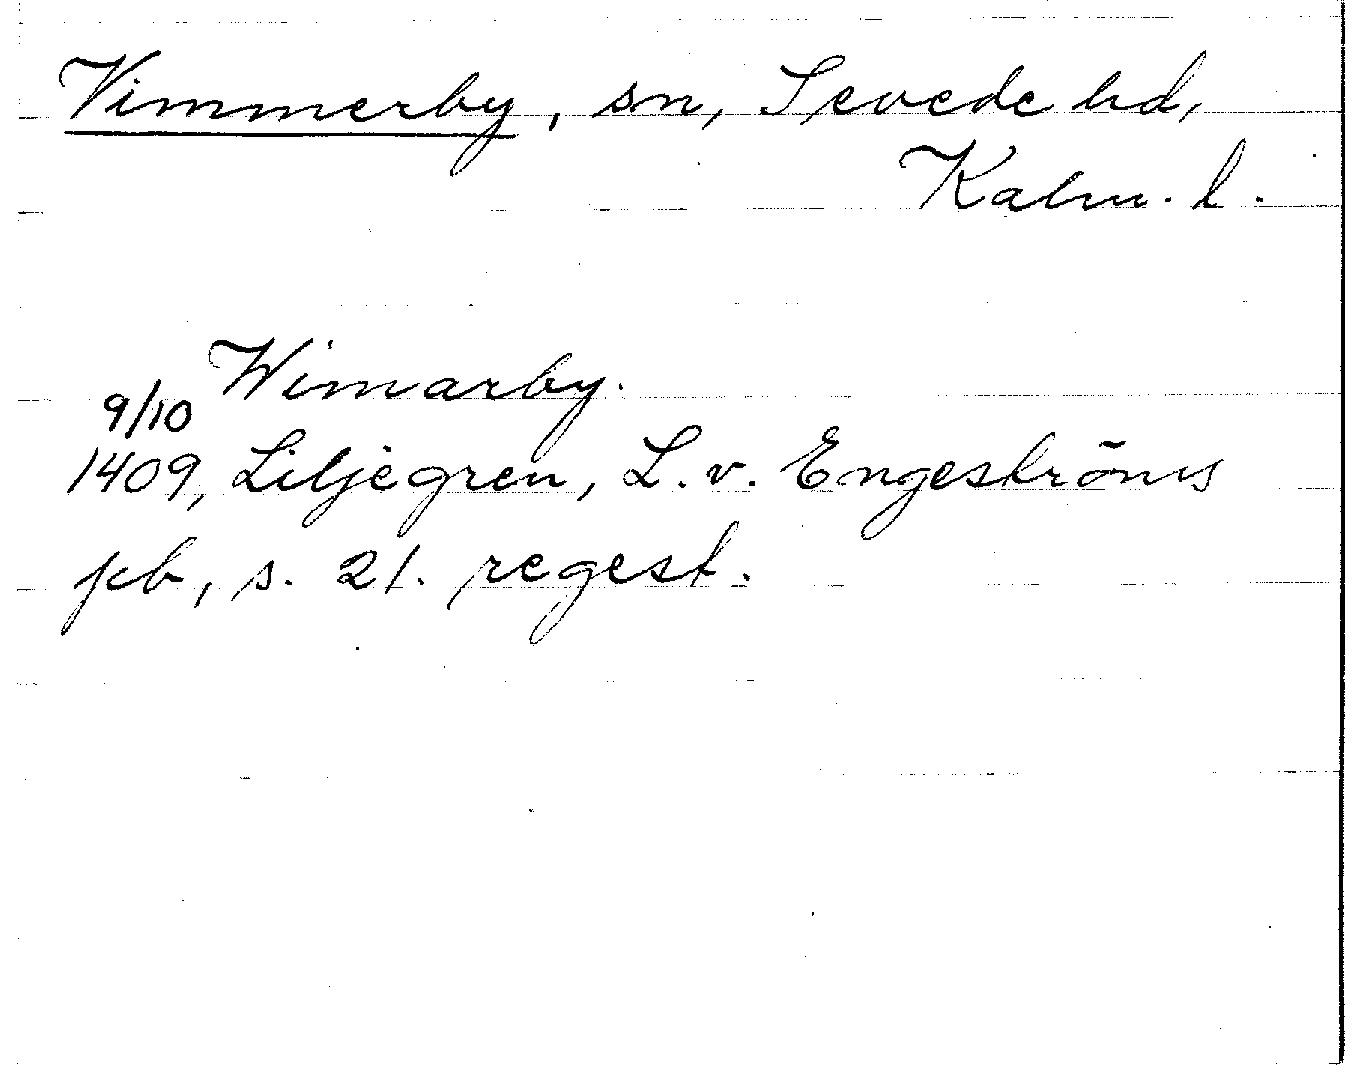 Vimmerby, sn, Sevede hd,
Kalm. l.
Wimarby.
9/10
1409, Liljegren, L. v. Engeströms
pb, s. 21. regest.